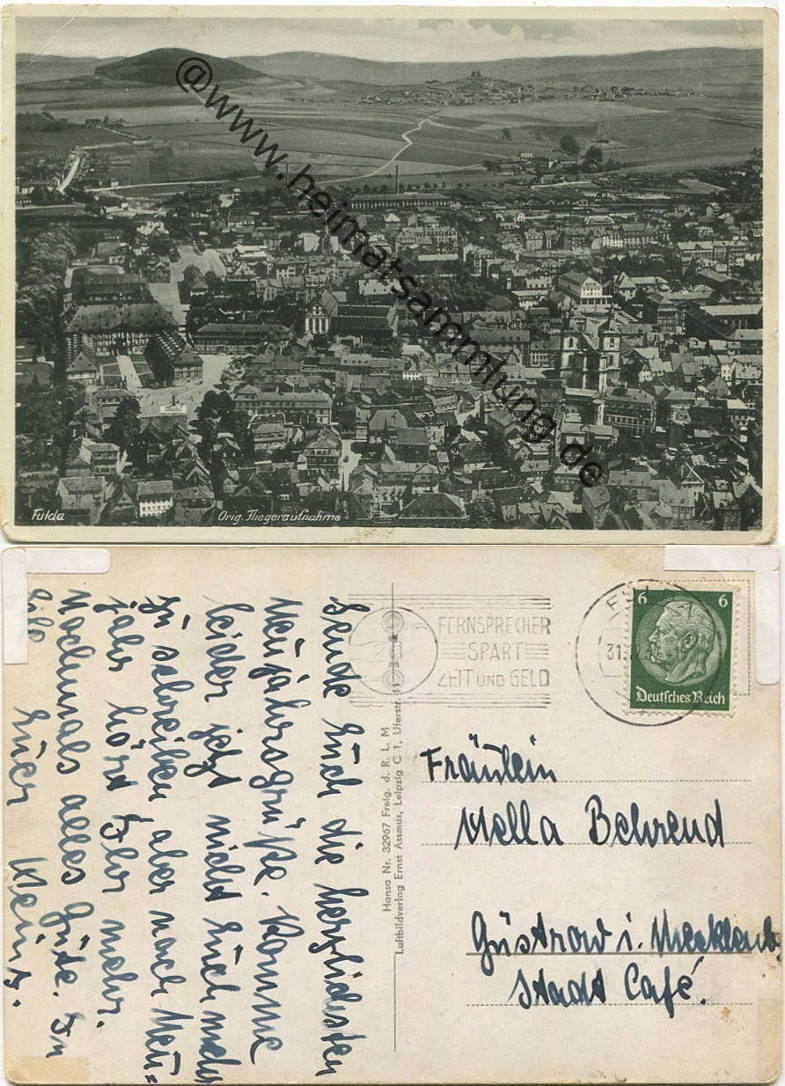 @www.heimatsammlung.de
Fulda
Orig. Fliegeraufnahme
Sende Euch die herzlichsten
Neujahrsgrüße. Komme
leider jetzt nicht Euch mehr
zu schreiben aber nach Neu=
jahr hört Ihr mehr.
Nochmals alles Gute. In
Eile
Euer Heinz.
Hansa Nr. 32967 Freig. d. R. L. M
Luftbildverlag Ernst Assmus, Leipzig C 1, Uferstr. 11
FERNSPRECHER
SPART
ZEIT UND GELD
31.
6 6
Deutsches Reich
Fräulein
Mella Behrend
Güstrow i. Mecklenb.
Stadt Café.